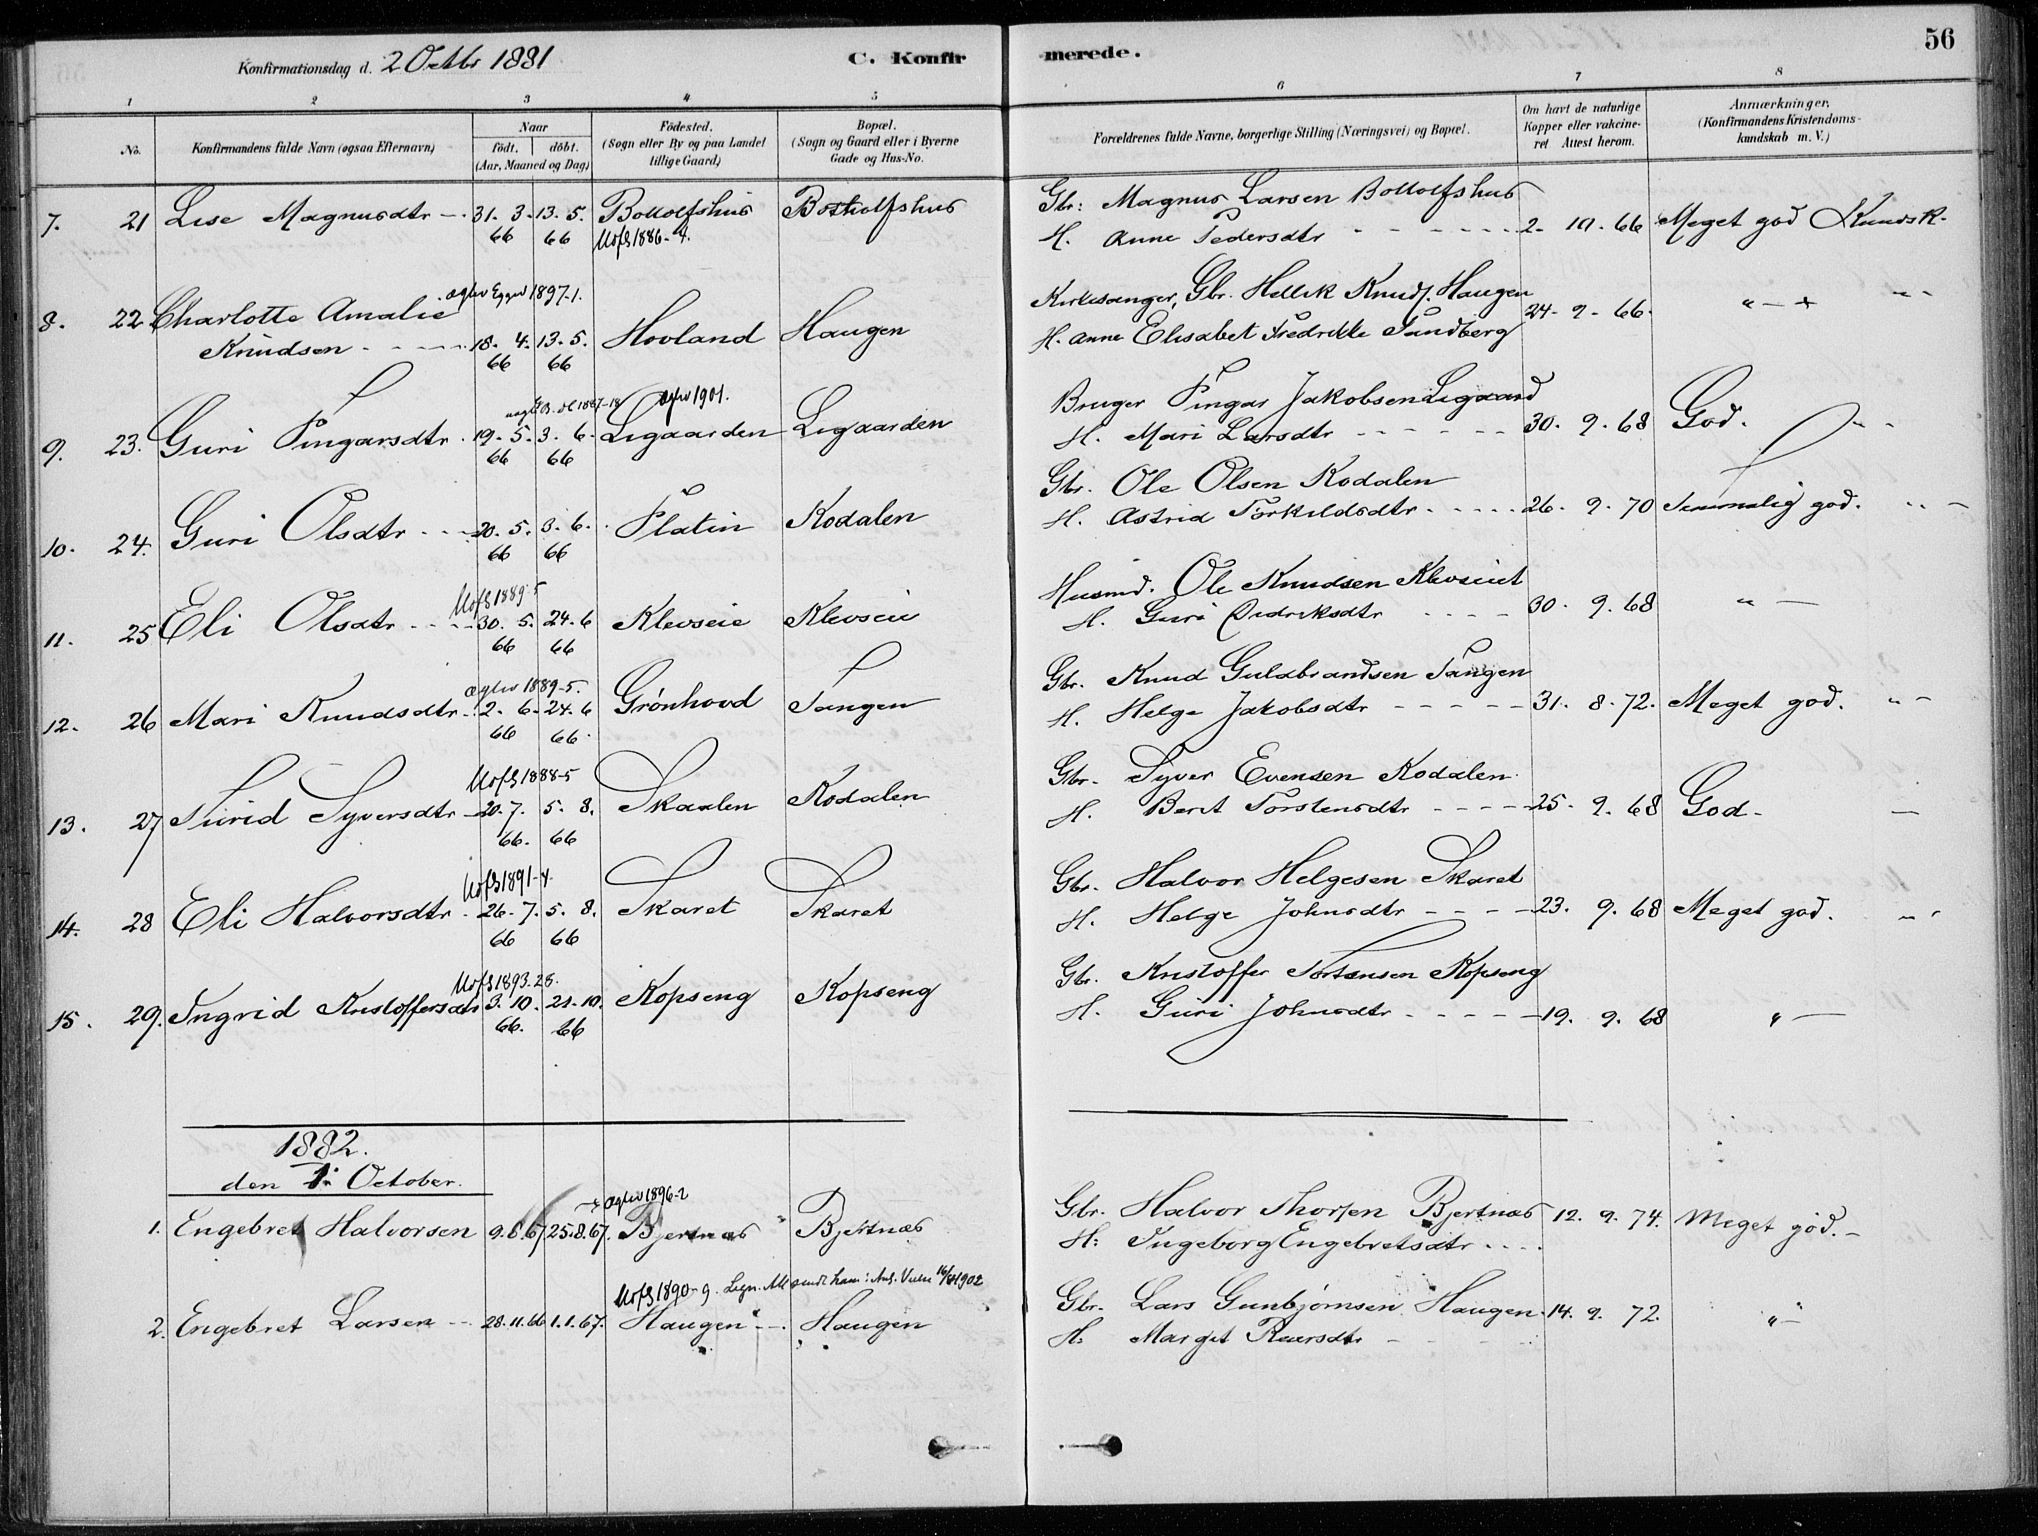 Konfirmationsdag d. 2 Octbr 1881 C. Konfirmerede. 56
1 2 3 4 5 6 7 8
No. Konfirmandens fulde Navn (ogsaa Efternavn) Naar födt. döbt. (Aar, Maaned og Dag) Födested. (Sogn eller By og paa Landet tillige Gaard) Bopæl. (Sogn og Gaard eller i Byerne Gade og Hus-No. Forældrenes fulde Navne, borgerlige Stilling (Næringsvei) og Bopæl. Om havt de naturlige Kopper eller vakcineret Attest herom. Anmærkninger. (Konfirmandens Kristendomskundskab m. V.)
7. 21 Lise Magnusdtr 31. 3. 13. 5. Bottolfshus Bottolfshus Gbr: Magnus Larsen Bottolfshus
66 66 Uofg 1886-4. H. Anne Pedersdtr 2. 10. 66 Meget god Kundsk.
aglev Eggedl 1897-1.
8. 22 Charlotte Amalie Kirkesanger, Gbr. Hellik Knuds. Haugen
Knudsen 18. 4. 13. 5. Hovland Haugen H. Anne Elisabet Fredrikke Sandberg 24. 9. 66. " — "
66 66
1887-18 aglev 1901.
9. 23. Guri Fingarsdtr 19. 5. 3. 6. Ligaarden Ligaarden Bruger Fingar Jakobsen Ligaard
66 66 H. Mari Larsdtr 30. 9. 68 God.
10. 24. Guri Olsdtr 20. 5. 3. 6. Flatin Kodalen Gbr. Ole Olsen Kodalen
66 66 H. Astrid Torkildsdtr 26. 9. 70 Temmelig god.
Uofg 1889-5
11. 25 Eli Olsdtr 30. 5. 24. 6 Klevseie Klevseie Husmd. Ole Knudsen Klevseiet
66 66 H. Guri Didriksdtr 30. 9. 68 " —
aglev 1889-5.
12. 26 Mari Knudsdtr 2. 6. 24. 6 Grønhovd Tangen Gbr. Knud Guldbrandsen Tangen
66 66. H. Helge Jakobsdtr 31. 8. 72. Meget god.
Uofg 1888-5
13. 27 Turid Syversdtr 20. 7. 5. 8. Skaalen Kodalen Gbr. Syver Evensen Kodalen
66. 66 H. Berit Torstensdtr 25. 9. 68 God. —
Uofg 1891-4.
14. 28 Eli Halvorsdtr 26. 7. 5. 8. Skaret Skaret Gbr. Halvor Helgesen Skaret
66 66 H. Helge Johnsdtr 23. 9. 68 Meget god.
Uofg 1893-28.
15. 29. Ingrid Kristoffersdtr 3. 10. 21. 10. Kopseng Kopseng Gbr. Kristoffer Torstensen Kopseng
66. 66 H. Guri Johnsdtr 19. 9. 68 " —
1882.
den 1. October.
aglev 1896-2
1. Engebret Halvorsen 9.6.67 25.8.67. Bjertnæs Bjertnæs Gbr. Halvor Thorsen Bjertnæs 12. 9. 74. Meget god. —
H: Ingeborg Engebretsdtr
Uofg 1890-9. 1902
2. Engebret Larsen 28.11.66 1.1.67. Haugen Haugen Gbr. Lars Gunbjørnsen Haugen 14. 9. 72. " —
H. Margit Reiersdtr